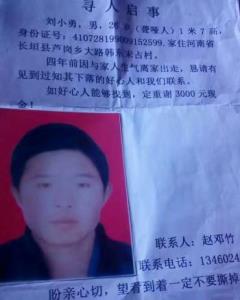 寻人启事
刘小勇，男，26岁（聋哑人）1米7高，
身份证号：410728199009152599.家住河南省
长垣县芦岗乡大路韩东末占村。
四年前因与家人生气离家出走，恳请有
见到过知其下落的好心人和我们联系。
如好心人能够找到，定重谢3000元现
金！
联系人：赵邓竹
联系电话：1346024
盼亲心切，望看到着一定不要撕掉